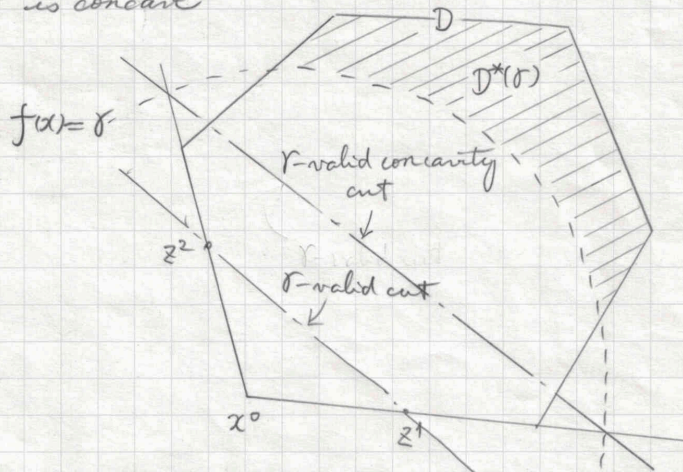 is concave
D
D*(γ)
f(x)=γ
γ-valid concavity
cut
z²
γ-valid cut
x⁰
z¹